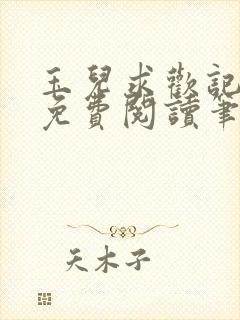 玉兒求歡記
免費閱讀筆
天木子